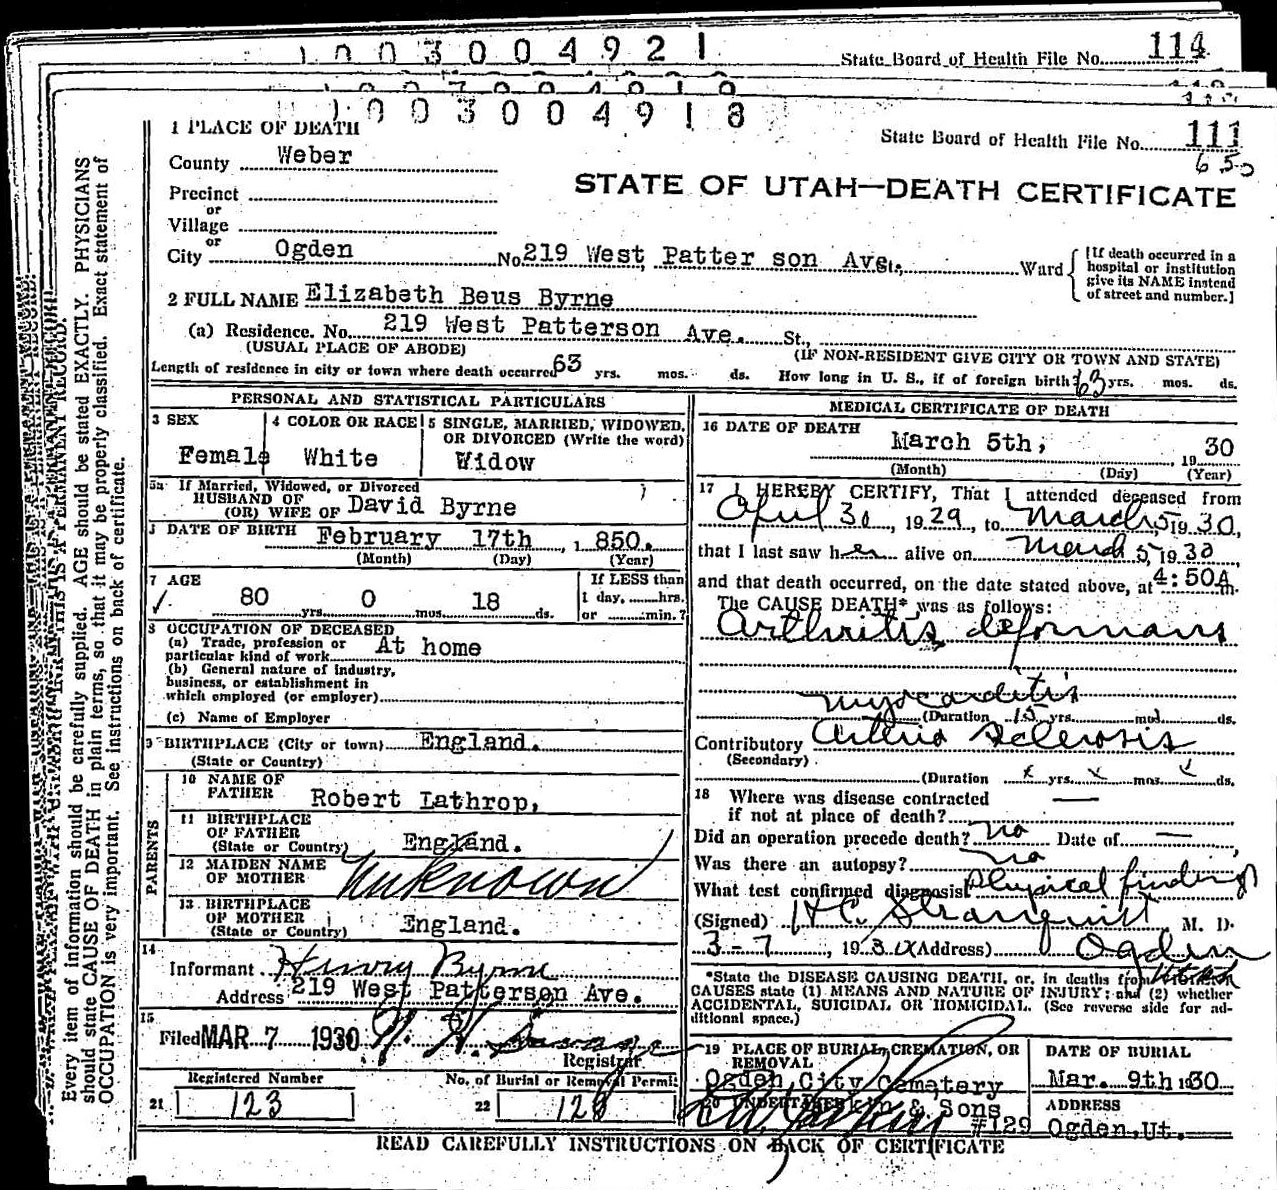 1003004921
State Board of Health File No. 114
1003004918
State Board of Health File No. 111
650
1 PLACE OF DEATH
County Weber
STATE OF UTAH—DEATH CERTIFICATE
Precinct
or
Village
or
City Ogden No. 219 West Patter son Ave. St., Ward
[If death occurred in a hospital or institution give its NAME instead of street and number.]
2 FULL NAME Elizabeth Beus Byrne
(a) Residence. No. 219 West Patterson Ave. St.,
(USUAL PLACE OF ABODE) (IF NON-RESIDENT GIVE CITY OR TOWN AND STATE)
Length of residence in city or town where death occurred 63 yrs. mos. ds. How long in U. S., if of foreign birth? 63 yrs. mos. ds.
PERSONAL AND STATISTICAL PARTICULARS
3 SEX
Female
4 COLOR OR RACE
White
5 SINGLE, MARRIED, WIDOWED, OR DIVORCED (Write the word)
Widow
5a If Married, Widowed, or Divorced
HUSBAND OF
(OR) WIFE OF David Byrne
DATE OF BIRTH February 17th, 1850.
(Month) (Day) (Year)
7 AGE
80 yrs. 0 mos. 18 ds.
If LESS than
1 day, hrs.
or min.?
8 OCCUPATION OF DECEASED
(a) Trade, profession or
particular kind of work At home
(b) General nature of industry,
business, or establishment in
which employed (or employer)
(c) Name of Employer
9 BIRTHPLACE (City or town) England.
(State or Country)
PARENTS
10 NAME OF
FATHER Robert Lathrop,
11 BIRTHPLACE
OF FATHER
(State or Country) England.
12 MAIDEN NAME
OF MOTHER Unknown
13 BIRTHPLACE
OF MOTHER
(State or Country) England.
14
Informant Henry Byrne
Address 219 West Patterson Ave.
15
Filed MAR 7 1930
Registrar.
Registered Number
21 123
No. of Burial or Removal Permit
22 126
MEDICAL CERTIFICATE OF DEATH
16 DATE OF DEATH
March 5th, 1930
(Month) (Day) (Year)
17 I HEREBY CERTIFY, That I attended deceased from
April 30, 1929, to March 5, 1930,
that I last saw her alive on March 5, 1930
and that death occurred, on the date stated above, at 4:50A m.
The CAUSE DEATH* was as follows:
Arthritis deformans
Myocarditis
(Duration 15 yrs. mos. ds.
Contributory Arterio Sclerosis
(Secondary)
(Duration x yrs. x mos. x ds.
18 Where was disease contracted
if not at place of death? —
Did an operation precede death? No Date of —
Was there an autopsy? No
What test confirmed diagnosis Physical findings
(Signed) H C. Stranquist M. D.
3-7, 1930 (Address) Ogden
Utah
*State the DISEASE CAUSING DEATH, or, in deaths from VIOLENT
CAUSES state (1) MEANS AND NATURE OF INJURY; and (2) whether
ACCIDENTAL, SUICIDAL OR HOMICIDAL. (See reverse side for ad-
ditional space.)
19 PLACE OF BURIAL, CREMATION, OR
REMOVAL
Ogden City Cemetery
DATE OF BURIAL
Mar. 9th 1930
20 UNDERTAKER & Sons
#129
ADDRESS
Ogden, Ut.
READ CAREFULLY INSTRUCTIONS ON BACK OF CERTIFICATE
Every item of information should be carefully supplied. AGE should be stated EXACTLY. PHYSICIANS
should state CAUSE OF DEATH in plain terms, so that it may be properly classified. Exact statement of
OCCUPATION is very important. See instructions on back of certificate.